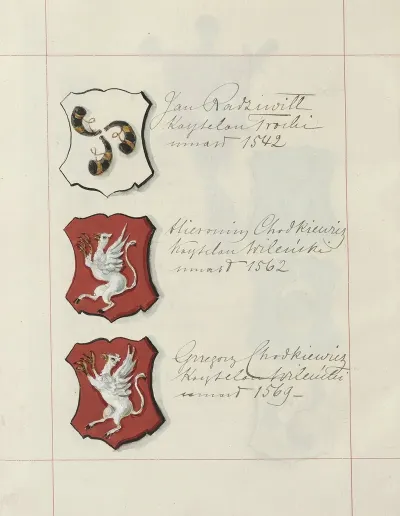 Jan Radziwiłł
Kasztelan Trocki
umarł 1542
Hieronim Chodkiewicz
Kasztelan Wileński
umarł 1562
Grzegorz Chodkiewicz
Kasztelan Wileński
umarł 1569